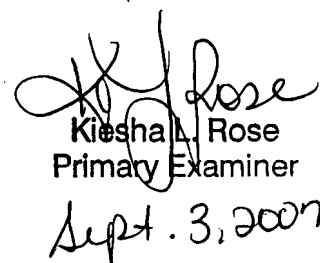 K L Rose
Kiesha L. Rose
Primary Examiner
Sept. 3, 2007